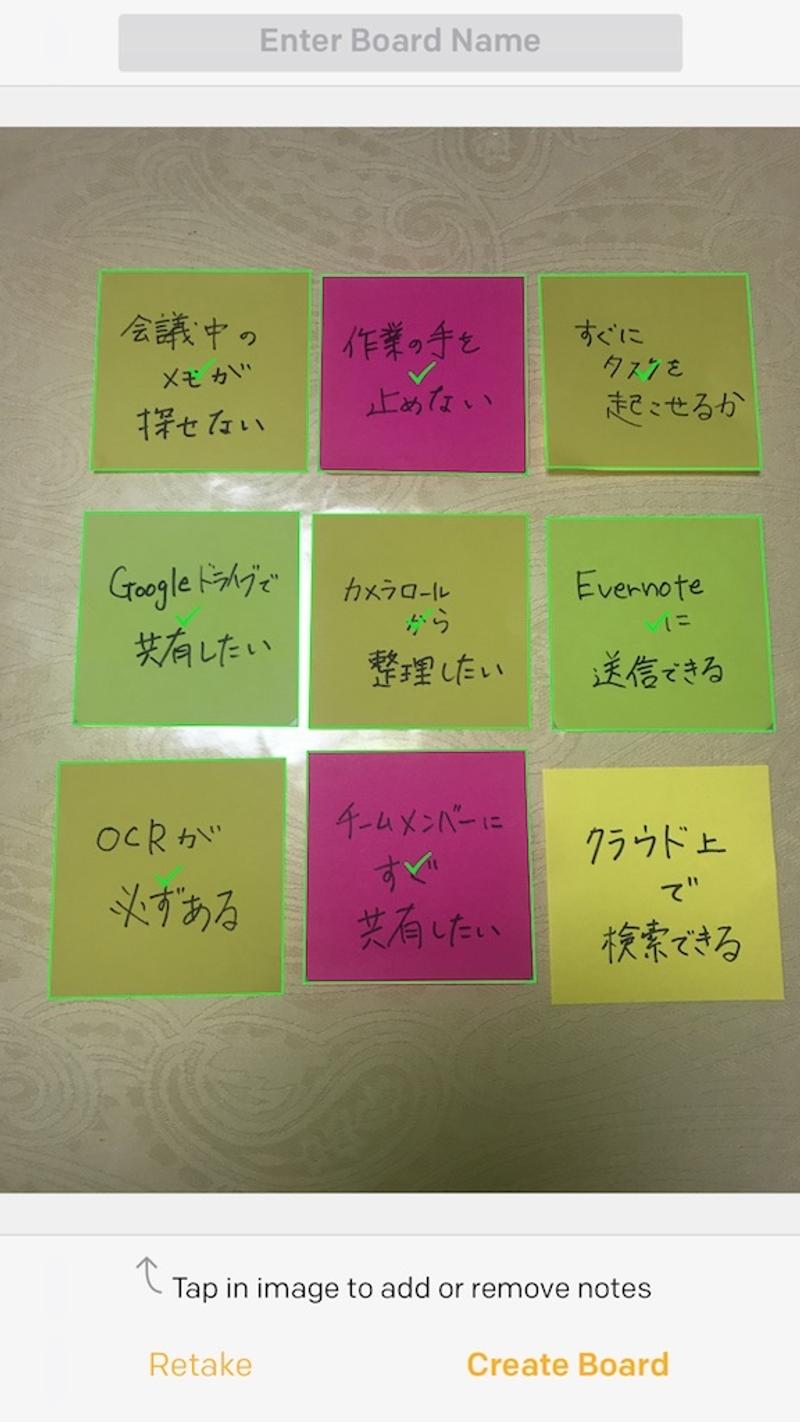 Enter Board Name
会議中の
メモが
探せない
作業の手を
止めない
すぐに
タスクを
起こせるか
Googleドライブで
共有したい
カメラロール
から
整理したい
Evernote
に
送信できる
OCRが
必ずある
チームメンバーに
すぐ
共有したい
クラウド上
で
検索できる
Tap in image to add or remove notes
Retake
Create Board